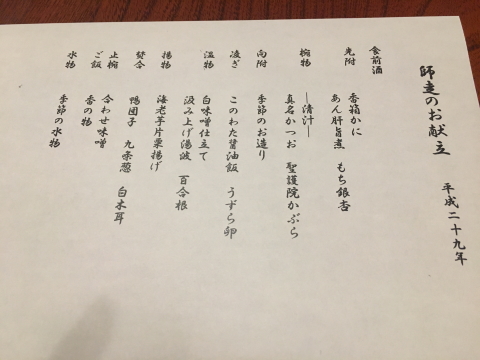 師走のお献立
平成二十九年
食前酒
先附 香箱かに
あん肝旨煮 もち銀杏
椀物 ―清汁―
真名かつお 聖護院かぶら
向附 季節のお造り
凌ぎ このわた醤油飯 うずら卵
温物 白味噌仕立て
汲み上げ湯波 百合根
揚物 海老芋片栗揚げ
焚合 鴨団子 九条葱 白木耳
止椀 合わせ味噌
ご飯 香の物
水物 季節の水物